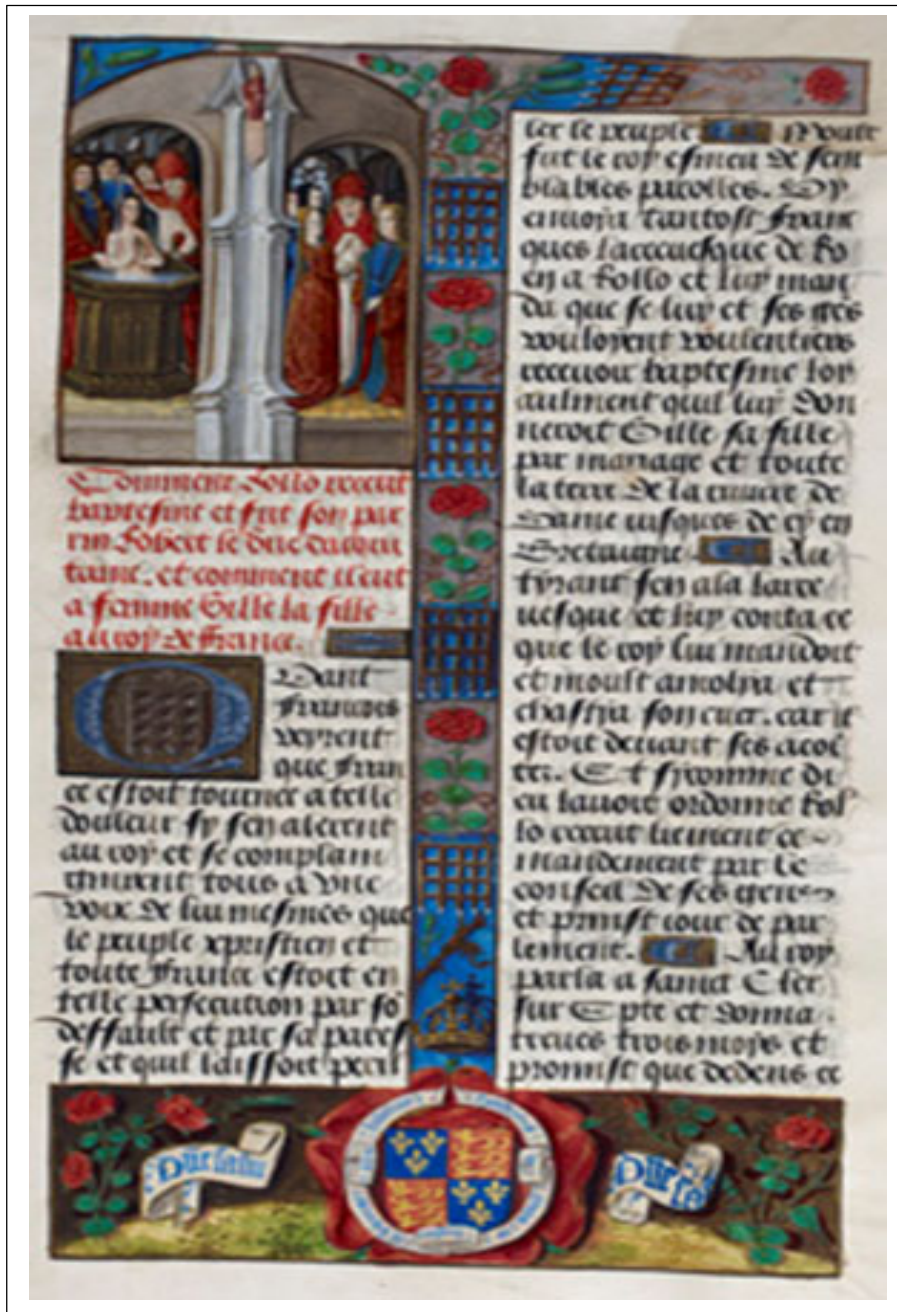 Comment Rollo receut
baptesme et fut son par
rin Robert le duc dacqui
taine. et comment il eut
a femme Gille la fille
au roy de france.
Quant
francois
veyrent
que fran
ce estoit tournee a telle
douleur sy sen alerent
au roy et se complain
rent tous a vne
voix de lui mesmes que
le peuple xpristien et
toute france estoit en
telle persecution par so
deffault et par sa pares
se et quil laissoit peril
ler le peuple Moult
fut le roy esmeu de sem
blables parolles. Sy
enuoya tantost franc
ques larceuesque de Ro
en a Rollo et luy man
da que se luy et ses gens
vouloyent voulentiers
receuoir baptesme loy
aulment quil luy don
neroit Gille sa fille
par mariage et toute
la terre de la riuiere de
iusques de cy en
Bretaigne Au
tyrant sen ala larce
uesque et luy conta ce
que le roy lui mandoit
et moult amolya et
chastia son cuer. car il
estoit deuant ses
Et sycomme di
eu lauoit ordonne Rol
lo receut liement ce
mandement par le
conseil de ses gens
et prinst iour de par
lement. Au roy
parla a sainct Cler
sur Epte et donna
treues trois moys et
promist que dedens ce